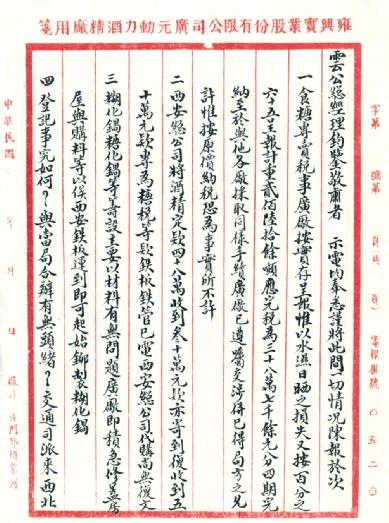 雍興實業股份有限公司廣元動力酒精廠用箋
字第 號第 頁共 頁
電報掛號 〇五二〇
雲公總經理鈞鑒敬肅者 示電均奉悉謹將此間一切情況陳報於次
一 食糖專賣稅事廣廠按實存呈報惟以水濕日晒之損失又按百分之
六十五呈報計重貳佰陸拾餘噸應完稅為二十八萬七千餘元分四期完
納至於與他各廠採取同樣手續廣廠已遵囑交涉併已得局方之允
許惟按原價納稅恐為事實所不許
二 西安總公司將酒精定款四十八萬收到叁十萬元款亦寄到復收到五
十萬元款專為糖稅等款鉄板鉄管已電西安總公司代購尚無復文
三 糊化鍋糖化鍋等籌設主要以材料有無問題廣廠即積急修蓋房
屋與購料等以俟西安鉄板運到即可起始鉚製糊化鍋
四 登記事究如何？與當局合辦有無頭緒？交通司派來西北
中華民國 年 月 日